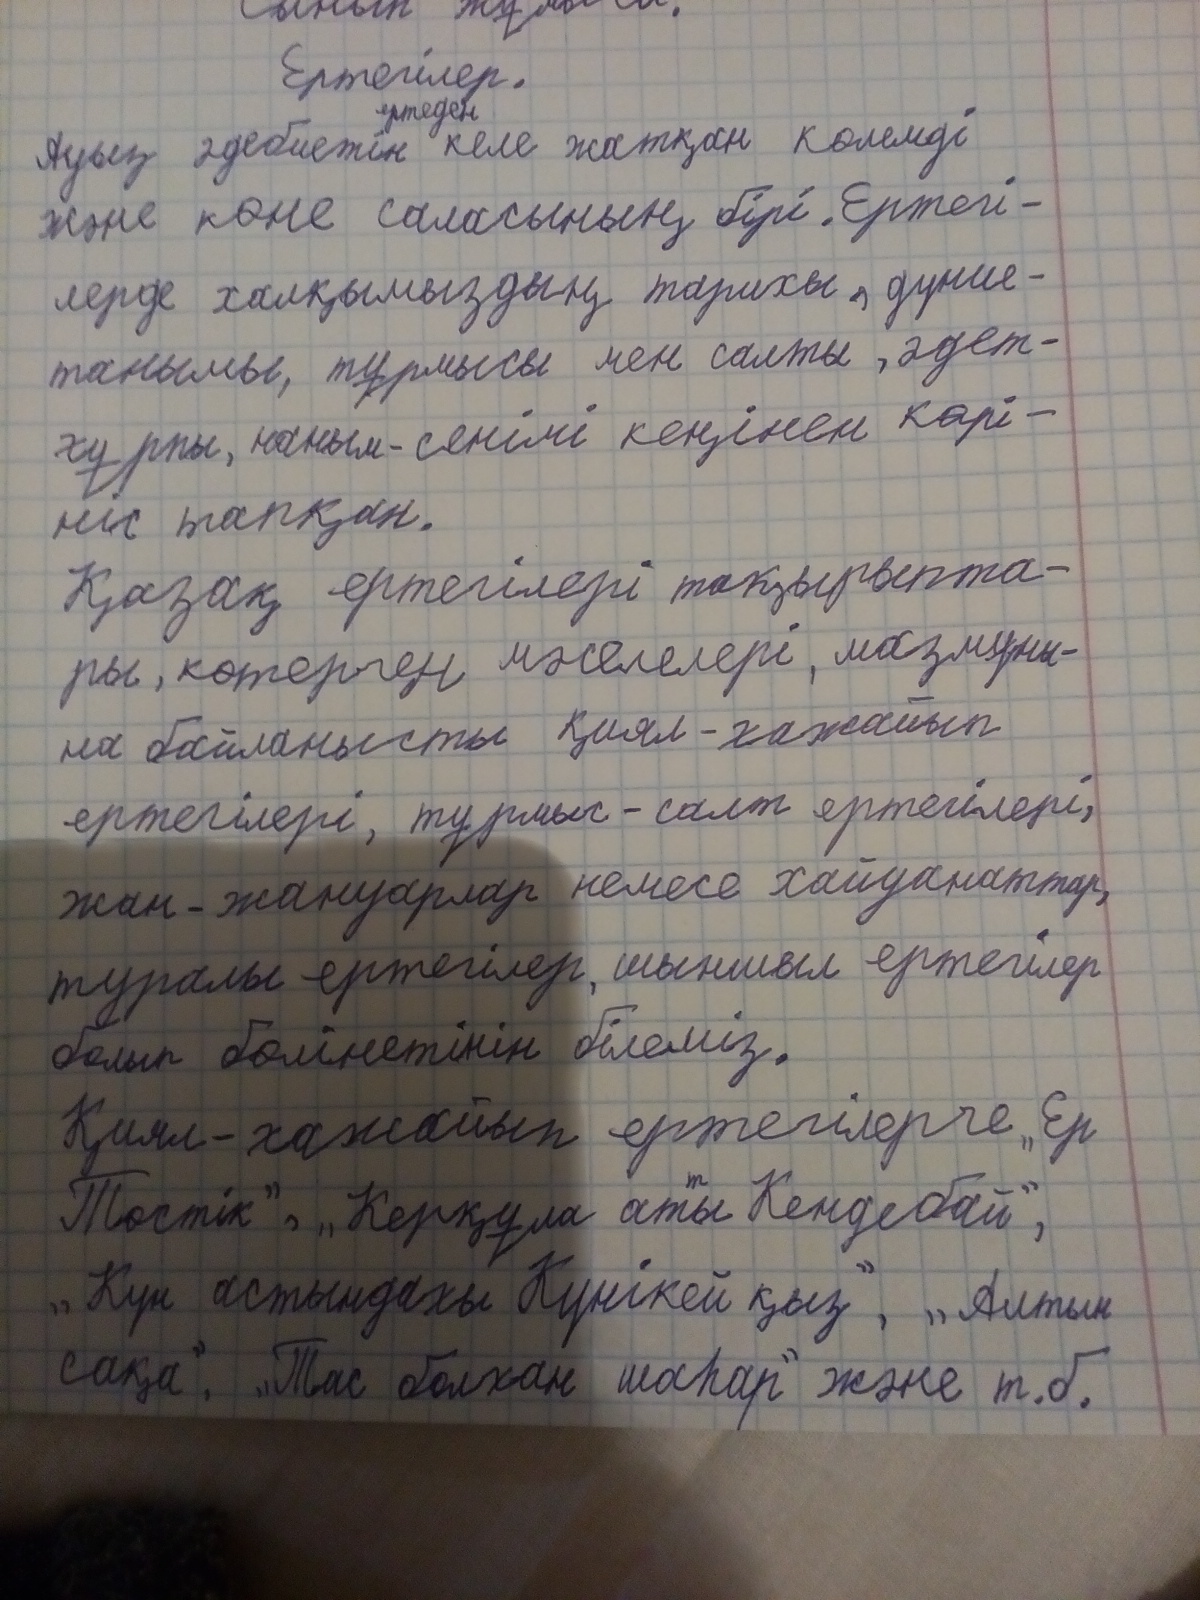 Сынып жұмысы.
Ертегілер.
ертеден
Ауыз әдебиетін келе жатқан көлемді
және көне саласының бірі. Ертегі-
лерде халқымыздың тарихы, дүние-
танымы, тұрмысы мен салты, әдет-
ғұрпы, наным-сенімі кеңінен көрі-
ніс тапқан.
Қазақ ертегілері тақырыпта-
ры, көтерген мәселелері, мазмұны-
на байланысты қиял-ғажайып
ертегілері, тұрмыс-салт ертегілері,
жан-жануарлар немесе хайуанаттар,
туралы ертегілер, шыншыл ертегілер
болып бөлінетінін білеміз.
Қиял-ғажайып ертегілерге „Ер
Төстік", „Керқұла атты Кендебай",
„Күн астындағы Күнікей қыз", „Алтын
сақа", „Тас болған шаһар" және т.б.